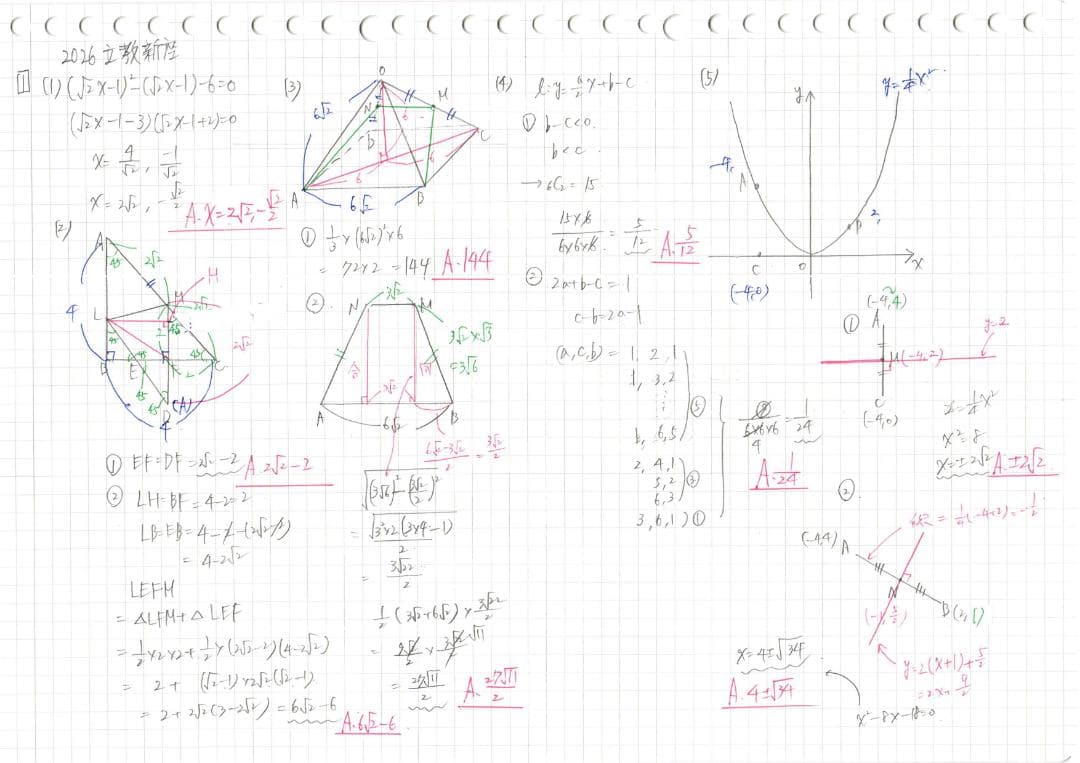 2026 立教新座
1 (1) (√2x-1)²-(√2x-1)-6=0
(√2x-1-3)(√2x-1+2)=0
x= 4/√2, -1/√2
x=2√2, -√2/2
A. x=2√2, -√2/2
(2)
A
45
2√2
M
H
4
L
2
45
2√2
B
E
F
C
D
(A)
4
① EF=DF=2√2-2
A. 2√2-2
② LH=BF=4-2=2
LB=EB=4-2-(2√2-2)
=4-2√2
LEFM
=△LFM+△LEF
=1/2×2×2+1/2×(2√2-2)(4-2√2)
= 2+ (√2-1)×2√2(√2-1)
=2+2√2(3-2√2)=6√2-6
A. 6√2-6
(3)
O
6√2
N
M
D
C
6
6
6
A
6√2
B
① 1/3×(6√2)²×6
= 72×2 =144
A. 144
②.
N
3√2
M
3√2×√3
=3√6
A
6√2
B
(6√2-3√2)/2=3√2/2
√((3√6)²-(3√2/2)²)
= √(3²×2(3×4-1))/2
= 3√22/2
1/2(3√2+6√2)×3√22/2
= 9√2/2 × 3√2×√11/2
= 27√11/2
A. 27√11/2
(4) l: y=a/2x+b-c
① b-c<0.
b<c
→ 6C2=15
15×6/6×6×6=5/12
A. 5/12
② 2a+b-c=1
c-b=2a-1
(a,c,b)= 1, 2, 1
1, 3, 2
⋮
1, 6, 5
⑤
2, 4, 1
5, 2
6, 3
③
3, 6, 1
①
9/6×6×6=1/24
A. 1/24
(5)
y=1/4x²
y
-4,
A
2,
B
C
O
x
(-4,0)
①
(-4,4)
A
y=2
M(-4,2)
C
(-4,0)
2=1/4x²
x²=8
x=±2√2
A. ±2√2
②.
=1/4(-4+2)=-1/2
(-4,4)
A
N
(-1,5/2)
B(2,1)
y=2(x+1)+5/2
=2x+9/2
x²-8x-18=0
x=4±√34
A. 4±√34